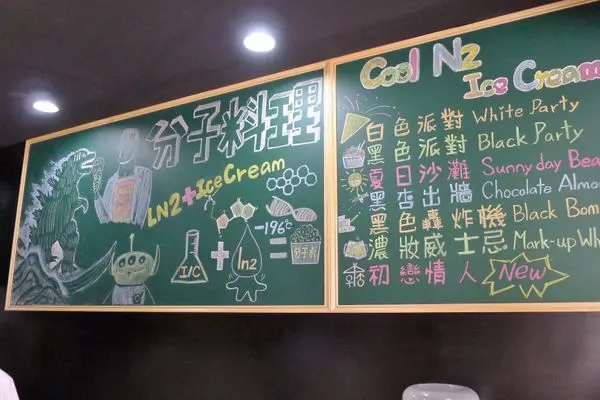 分子料理
LN2+IceCream
S
-196℃
I/C + ln2 = 分子冰
Cool N2
Ice Cream
白色派對 White Party
黑色派對 Black Party
夏日沙灘 Sunny day Bea
黑杏出牆 Chocolate Almo
黑色轟炸機 Black Bom
濃妝威士忌 Mark-up Wh
初戀情人 New